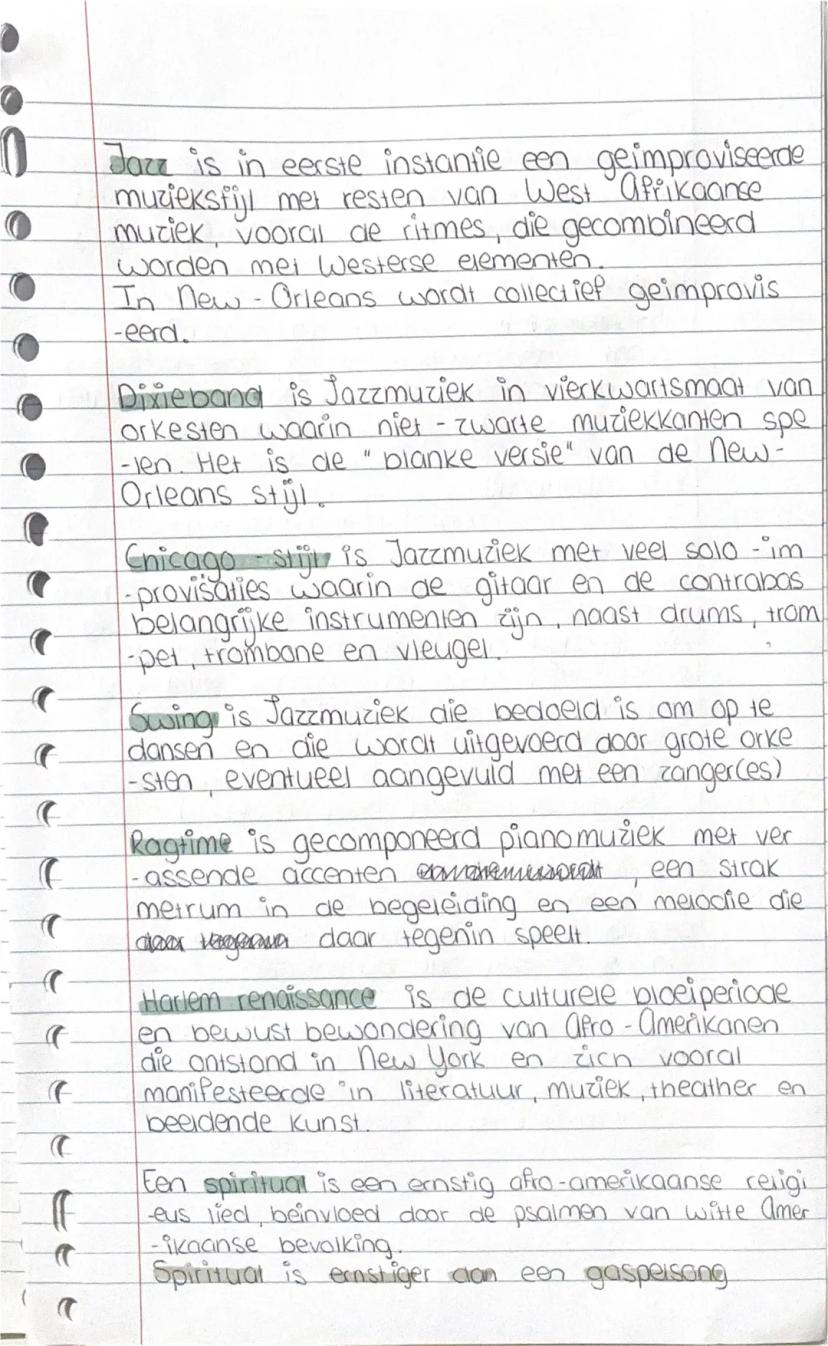 Jazz is in eerste instantie een geimproviseerde
muziekstijl met resten van West Afrikaanse
muziek, vooral de ritmes, die gecombineerd
worden met Westerse elementen.
In New - Orleans wordt collectief geimprovis
-eerd.
Dixieband is Jazzmuziek in vierkwartsmaat van
orkesten waarin niet - zwarte muziekkanten spe
-len. Het is de "blanke versie" van de New -
Orleans stijl.
Chicago - stijl is Jazzmuziek met veel solo - im
-provisaties waarin de gitaar en de contrabas
belangrijke instrumenten zijn, naast drums, trom
-pet, trombone en vleugel.
Swing is Jazzmuziek die bedoeld is om op te
dansen en die wordt uitgevoerd door grote orke
-sten, eventueel aangevuld met een zanger(es)
Ragtime is gecomponeerd pianomuziek met ver
-assende accenten , een strak
metrum in de begeleiding en een melodie die
daar tegenin speelt.
Harlem renaissance is de culturele bloeiperiode
en bewust bewondering van Afro - Amerikanen
die ontstond in New York en zich vooral
manifesteerde in literatuur, muziek, theather en
beeldende kunst.
Een spiritual is een ernstig afro-amerikaanse religi
-eus lied, beïnvloed door de psalmen van witte Amer
-ikaanse bevolking.
Spiritual is ernstiger dan een gospelsong